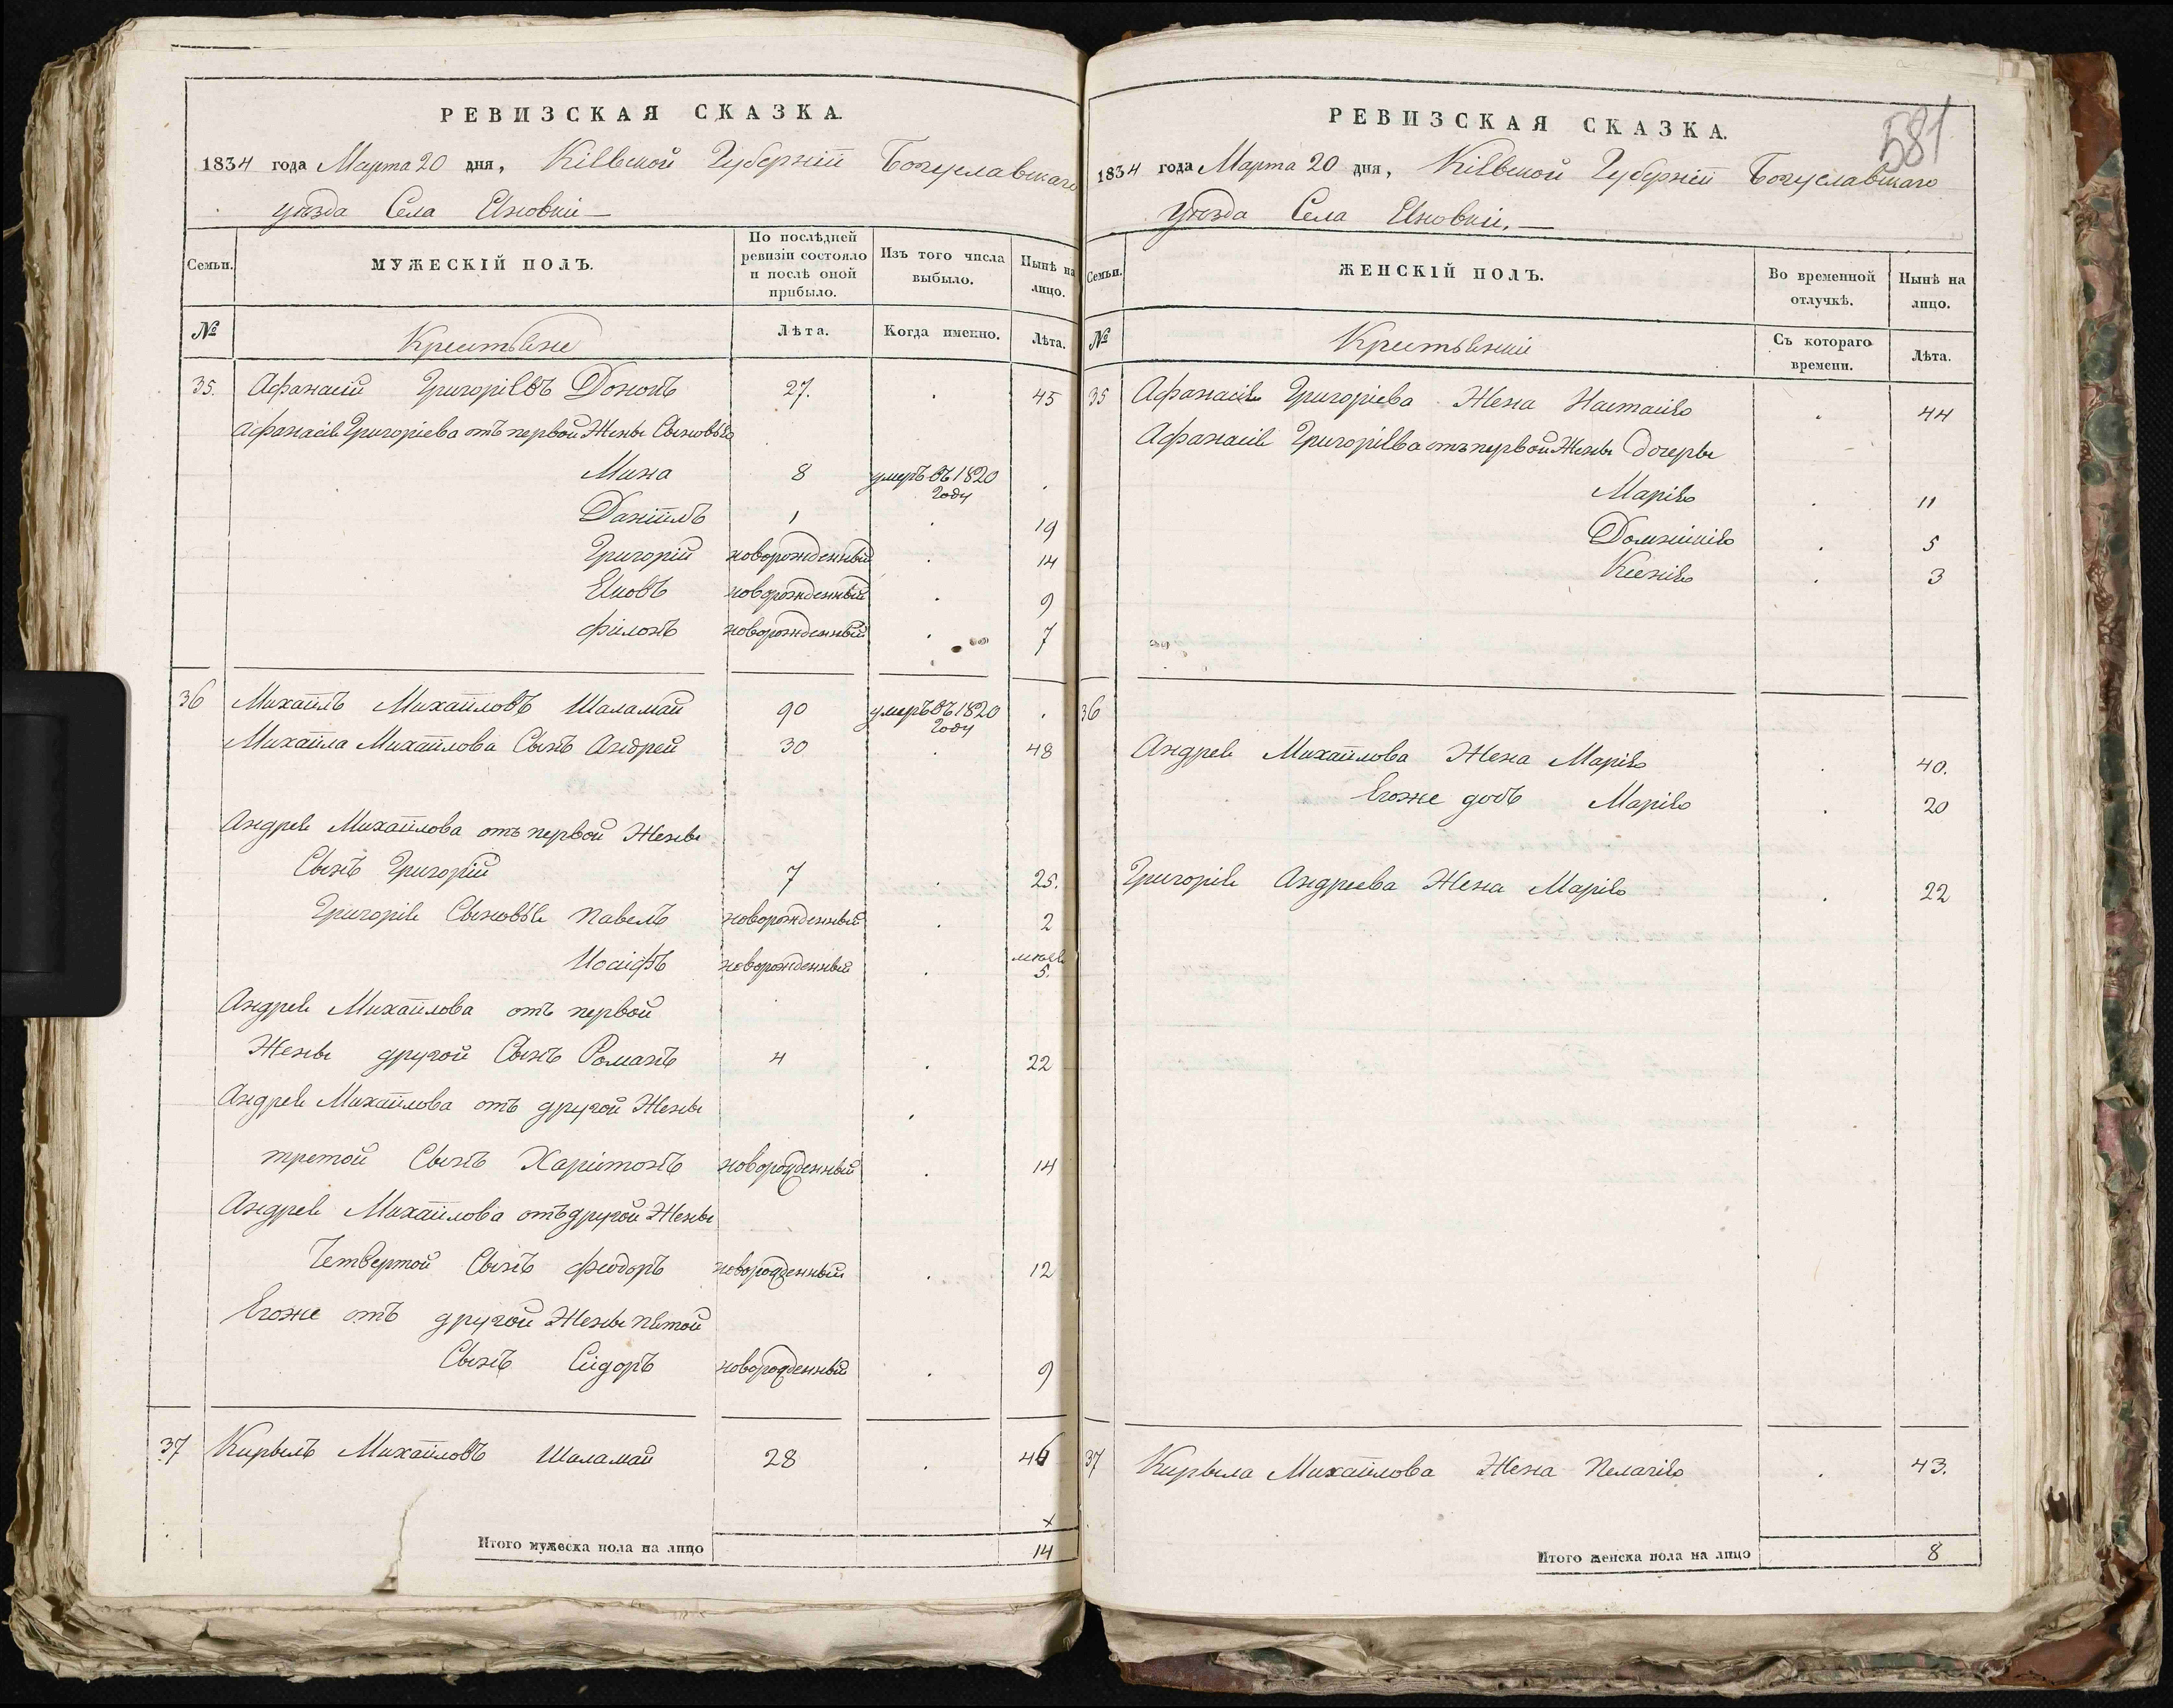 РЕВИЗСКАЯ СКАЗКА.
1834 года Марта 20 дня, Кіевской Губерніи Богуславскаго
уѣзда Села Яновки
Семьи.
МУЖЕСКІЙ ПОЛЪ.
По послѣдней ревизіи состояло и послѣ оной прибыло.
Изъ того числа выбыло.
Нынѣ на лицо.
№
Крестьяне
Лѣта.
Когда именно.
Лѣта.
35. Афанасій Григоріевъ Дононъ 27. 45
Афанасія Григоріева отъ первой Жены Сыновья
Мина 8 умеръ въ 1820
Году
Даніилъ 1 19
Григорій новорожденный 14
Яковъ новорожденный 9
Филонъ новорожденный 7
36 Михаилъ Михайловъ Шаламай 90 умеръ въ 1820
Году
Михайла Михайлова Сынъ Андрей 30 48
Андрея Михайлова отъ первой Жены
Сынъ Григорій 7 25.
Григорія Сыновья Павелъ новорожденный 2
Иосифъ новорожденный 5.
Андрея Михайлова отъ первой
Жены другой Сынъ Романъ 4 22
Андрея Михайлова отъ другой Жены
третой Сынъ Харитонъ новорожденный 14
Андрея Михайлова отъ другой Жены
Четвертой Сынъ Феодоръ новорожденный 12
Егоже отъ другой Жены пятой
Сынъ Сидоръ новорожденный 9
37 Кирылъ Михайловъ Шаламай 28 46
×
Итого мужеска пола на лицо 14
581
РЕВИЗСКАЯ СКАЗКА.
1834 года Марта 20 дня, Кіевской Губерніи Богуславскаго
уѣзда Села Яновки.
Семьи.
ЖЕНСКІЙ ПОЛЪ.
Во временной отлучкѣ.
Нынѣ на лицо.
№
Крестьянки
Съ котораго времени.
Лѣта.
35 Афанасія Григоріева Жена Настасія 44
Афанасія Григоріева отъ первой Жены дочеры
Марія 11
Домникія 5
Ксенія 3
36
Андрея Михайлова Жена Марія 40.
Егоже дочь Марія 20
Григорія Андреева Жена Марія 22
37 Кирыла Михайлова Жена Пелагія 43.
Итого женска пола на лицо 8